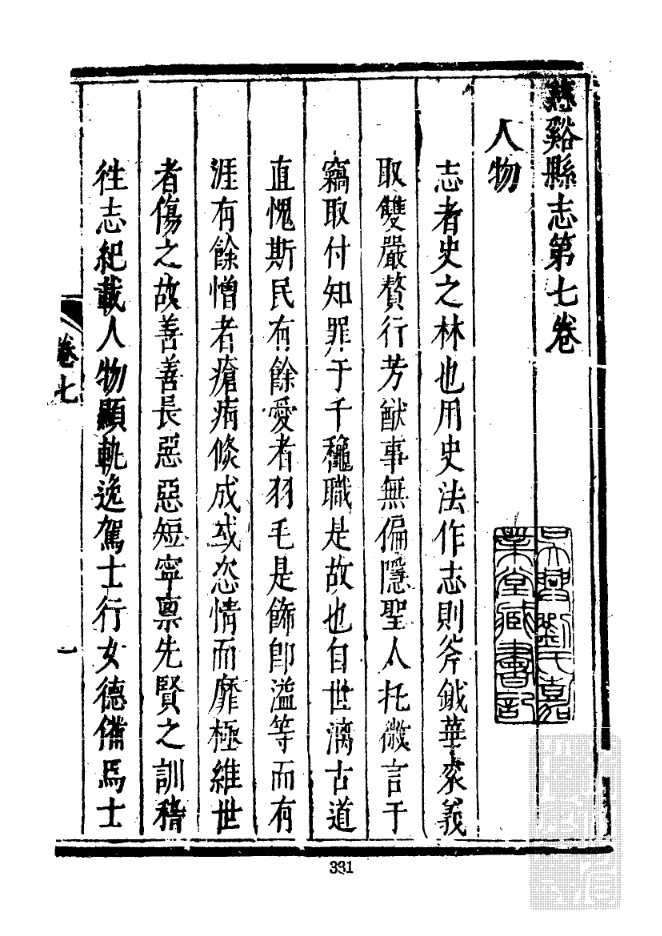 慈谿縣志第七卷
人物
志者史之林也用史法作志則斧鉞華袞義
取雙嚴贅行芳猷事無偏隱聖人托微言于
竊取付知罪于千穐職是故也自世漓古道
直愧斯民有餘愛者羽毛是飾卽溢等而有
涯有餘憎者瘡痏倐成或恣情而靡極維世
者傷之故善善長惡惡短寧禀先賢之訓稽
徃志紀載人物顯軌逸駕士行女德備焉士
卷七
一
吳興劉氏嘉
業堂藏書記
331